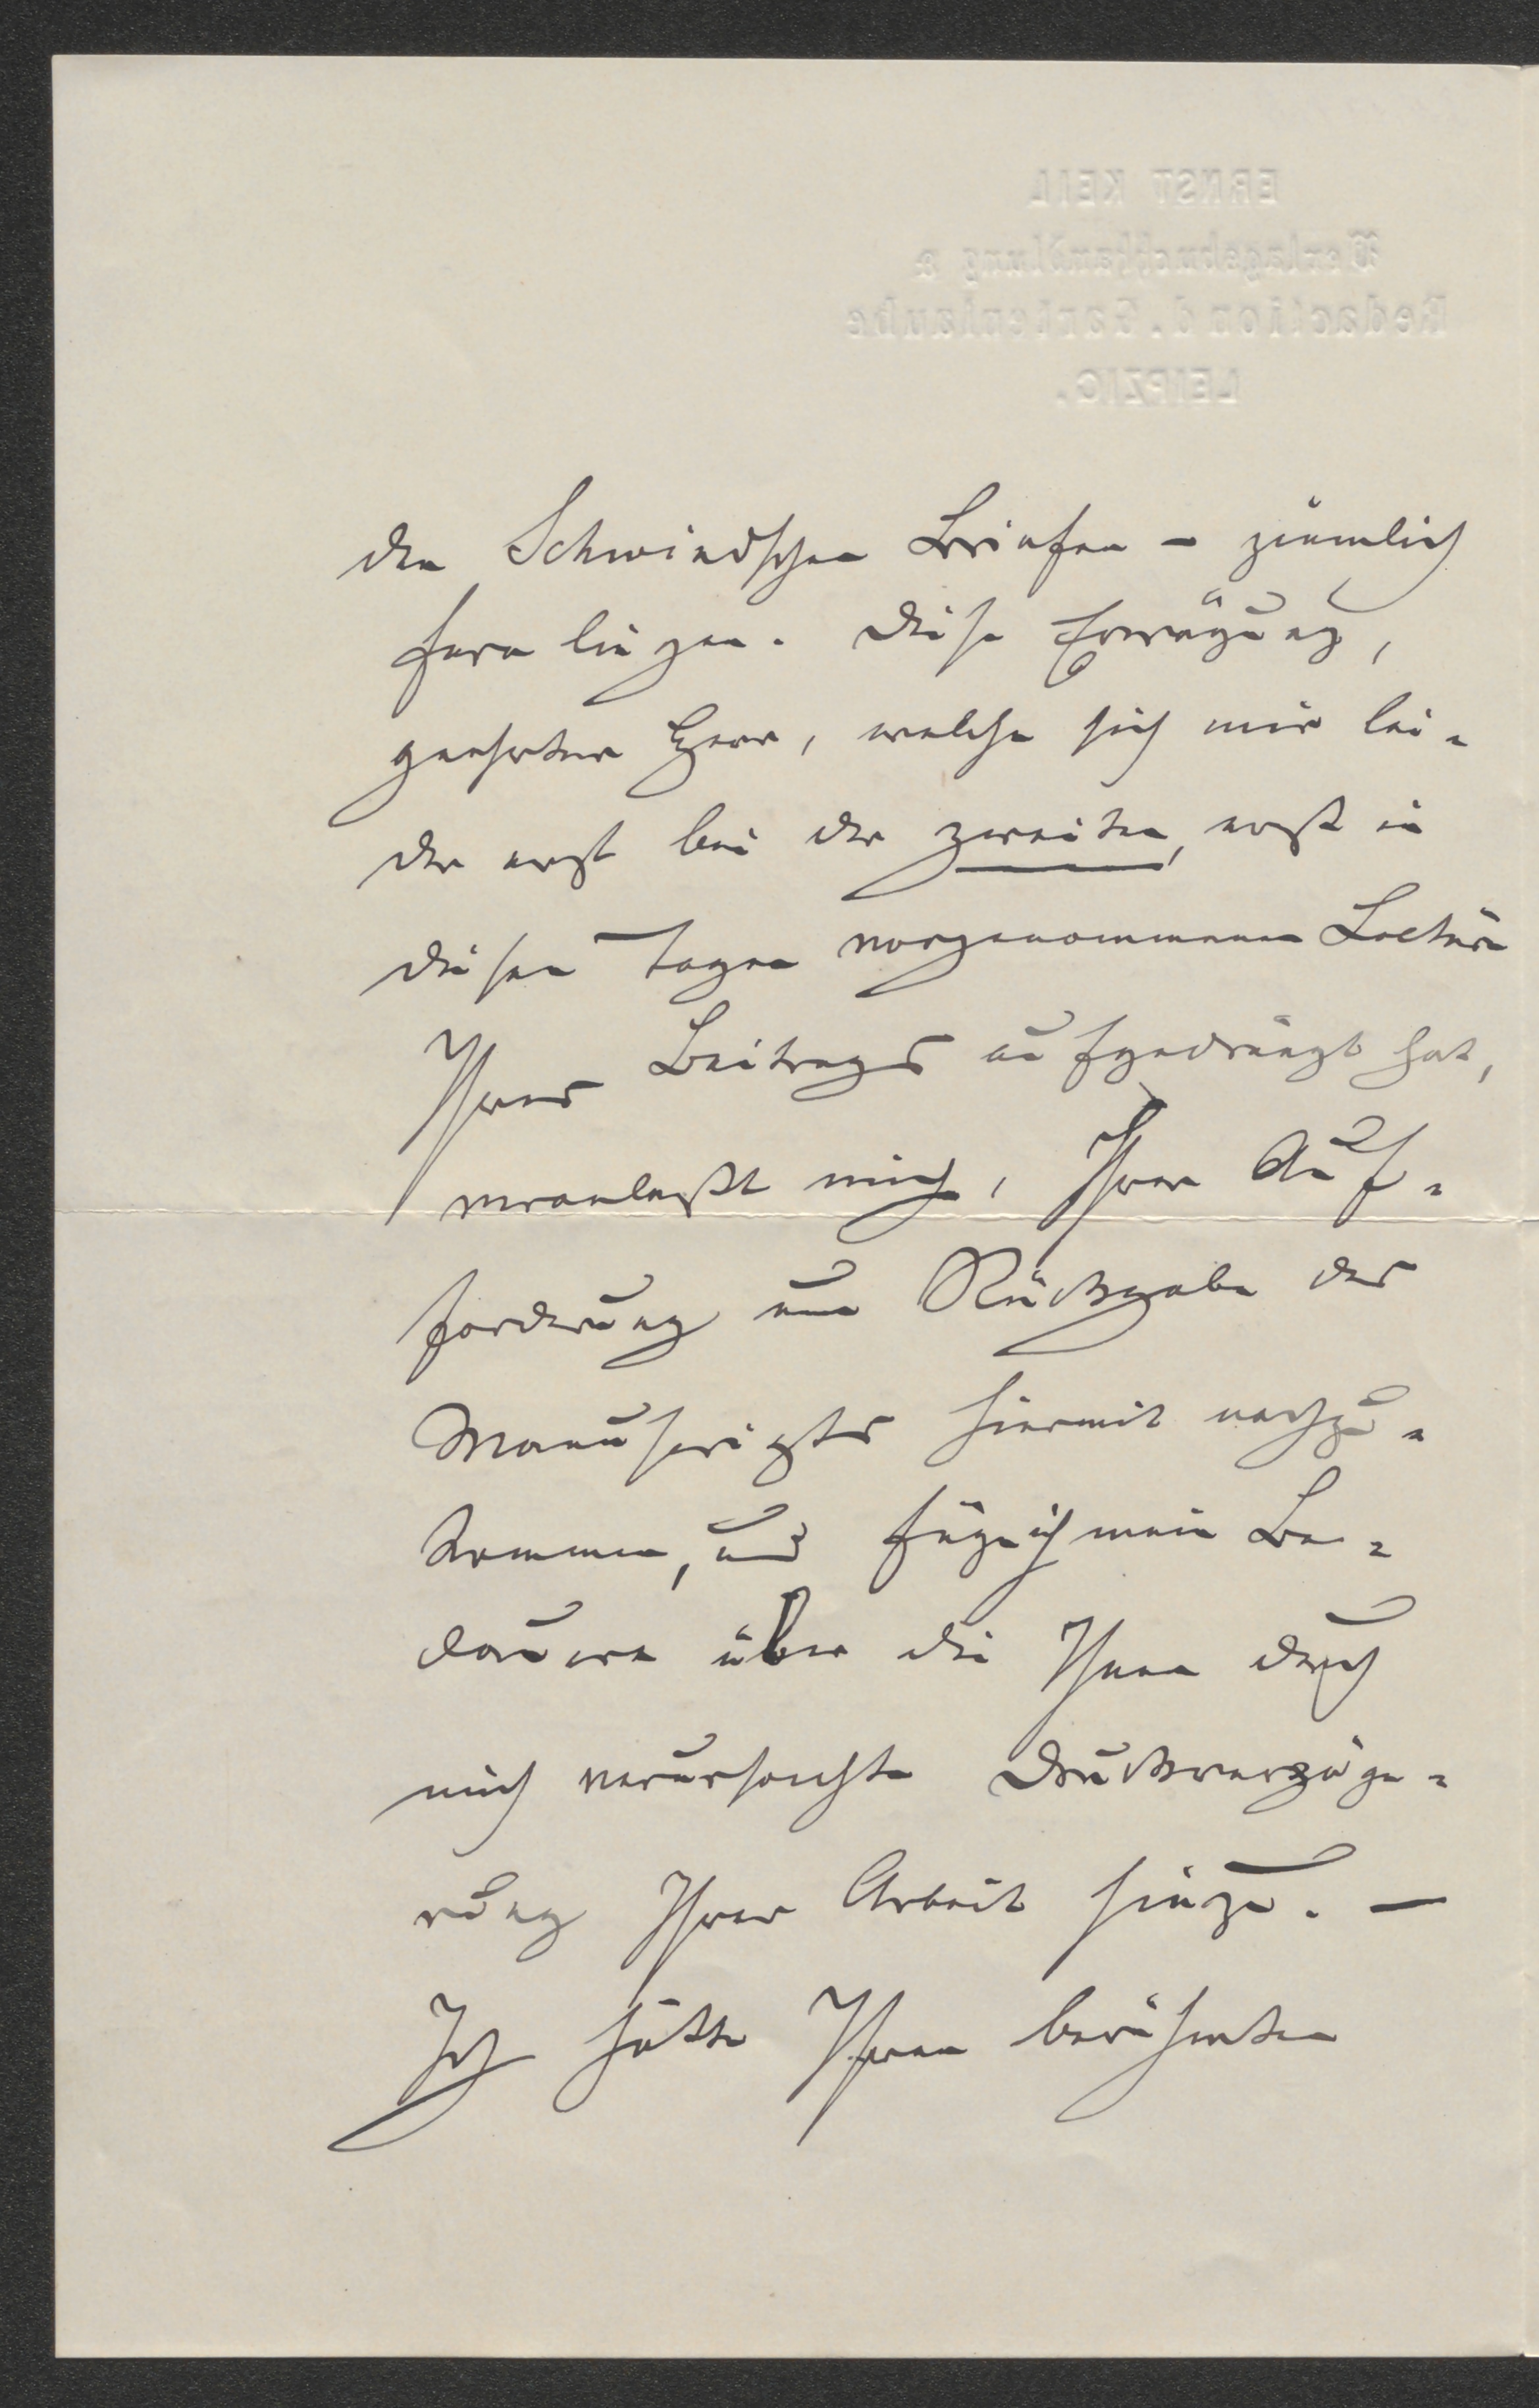 ERNST KEIL
Verlagsbuchhandlung &
Redaction d. Gartenlaube
LEIPZIG.
den Schwindschen Briefen – ziemlich
fern liegen. Diese Erwägung,
geehrter Herr, welche sich mir lei-
der erst bei der zweiten, erst in
diesen Tagen vorgenommenen Lectüre
Ihres Beitrags aufgedrängt hat,
veranlaßt mich, Ihrer Auf-
forderung um Rückgabe des
Manuscripts hiermit nachzu-
kommen, und füge ich mein Be-
dauern über die Ihnen durch
mich verursachte Druckverzöge-
rung Ihrer Arbeit hinzu. –
Ich hätte Ihren berühmten